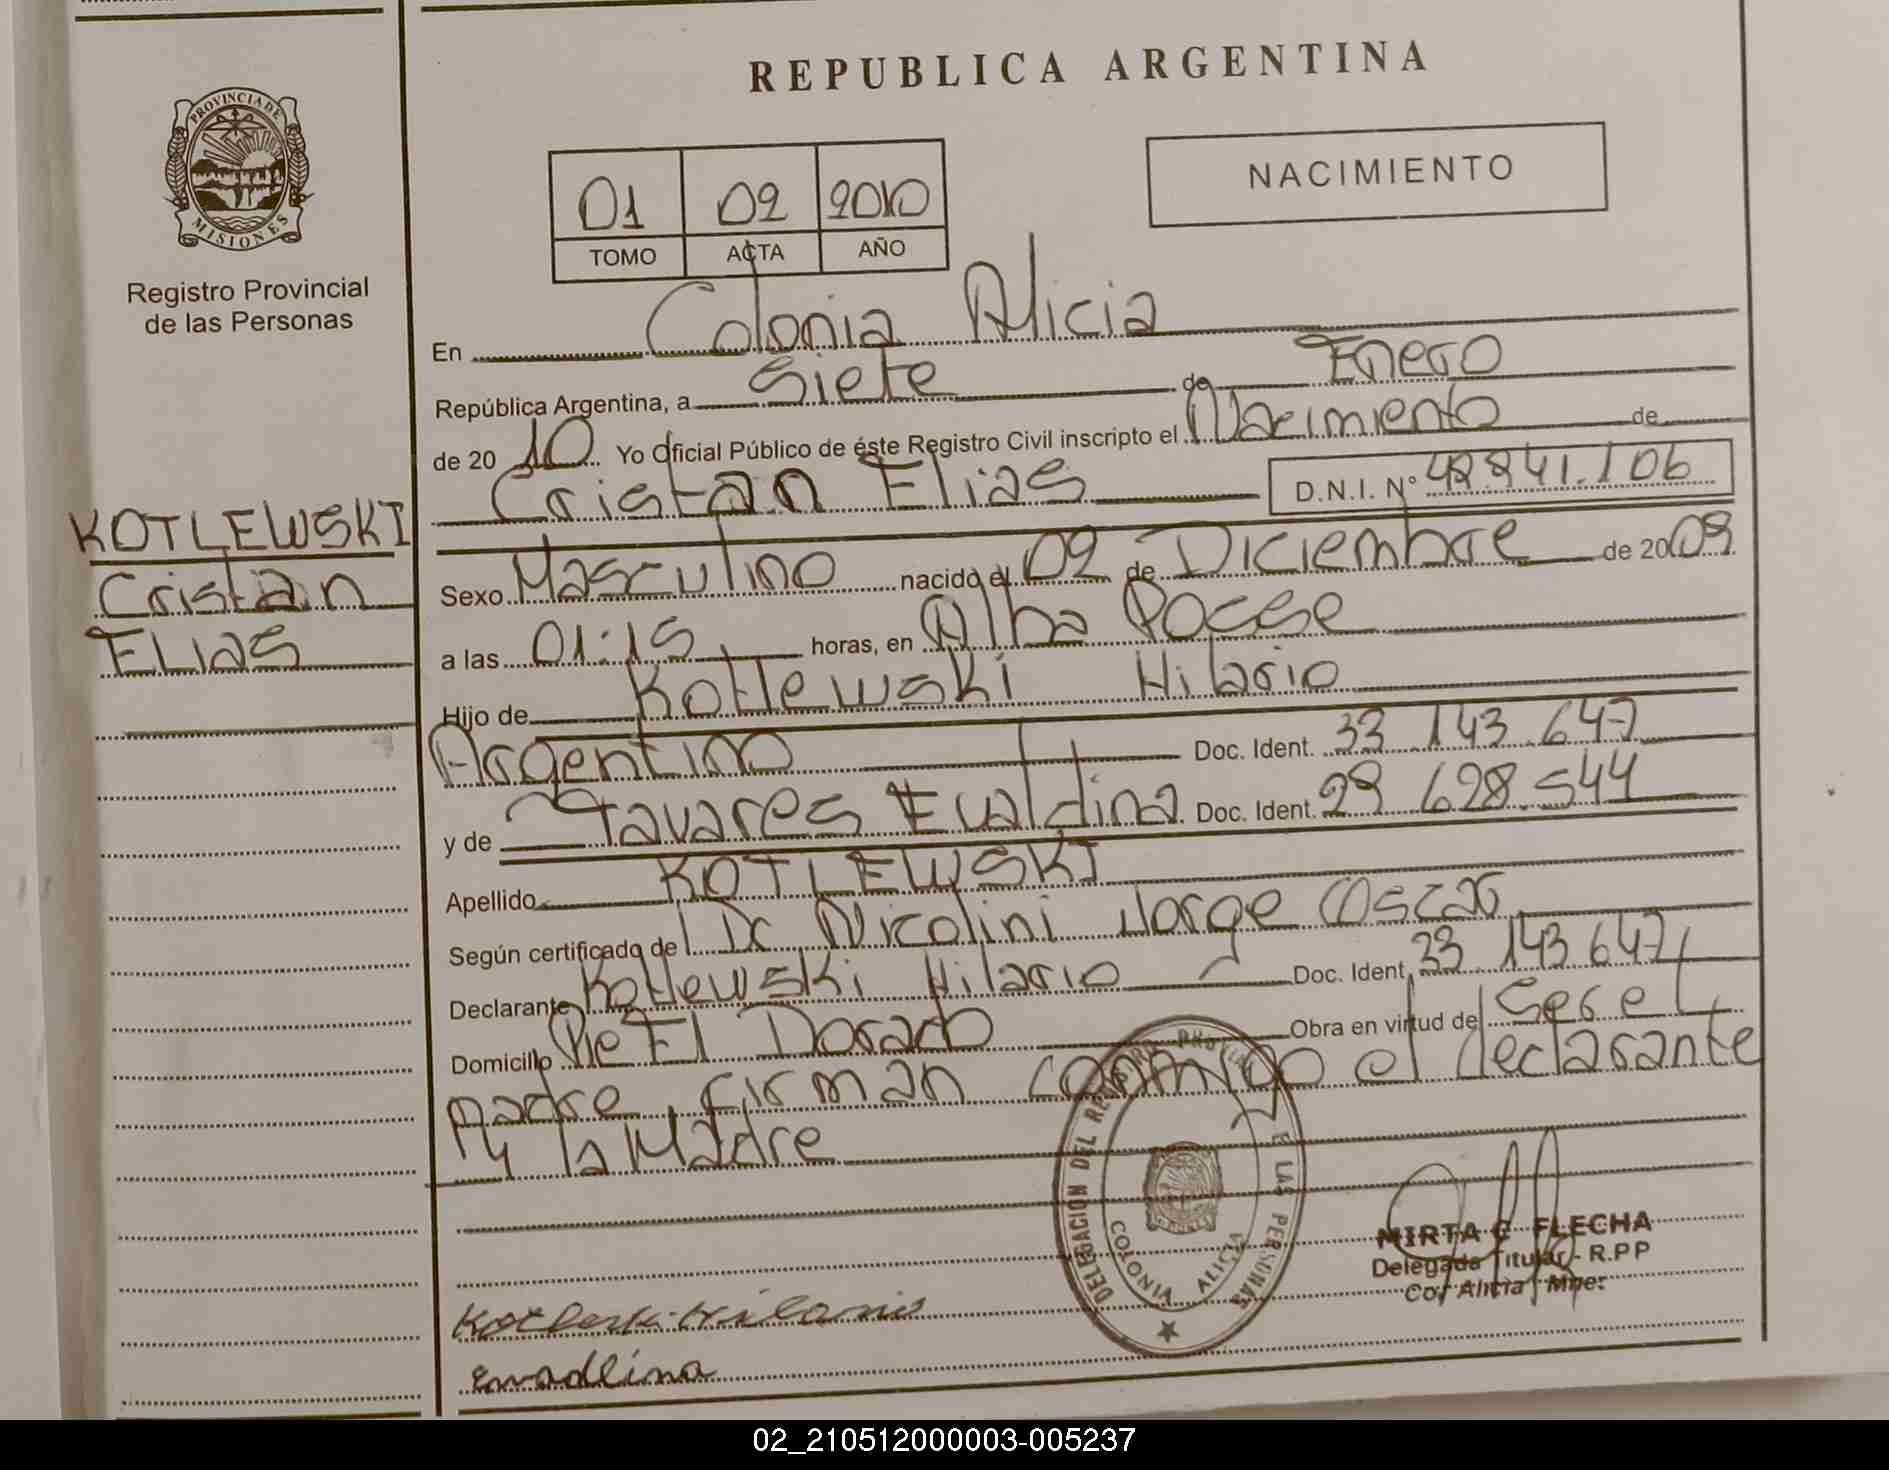 REPUBLICA ARGENTINA
PROVINCIA DE
MISIONES
Registro Provincial
de las Personas
01 02 2010
TOMO ACTA AÑO
NACIMIENTO
En Colonia Alicia
República Argentina, a Siete de Enero
de 2010 Yo Oficial Público de éste Registro Civil inscripto el Nacimiento de
Cristan Elias D.N.I. Nº 49.841.106
KOTLEWSKI
Cristan
ELIAS
Sexo Masculino nacido el 02 de Diciembre de 2009
a las 01:15 horas, en Alba Posse
Hijo de Kotlewski Hilario
Argentino Doc. Ident. 33 143 647
y de Tavares Eualdina Doc. Ident. 29 628 544
Apellido KOTLEWSKI
Según certificado de Dr Nicolini Jorge Oscar
Declarante Kotlewski Hilario Doc. Ident. 33 143 647
Domicilio Pje El Dorado Obra en virtud de Ser el
Padre, firman conmigo el declarante
y la Madre
DELEGACION DEL REGISTRO PROVINCIAL DE LAS PERSONAS
COLONIA ALICIA
MIRTA E FLECHA
Delegada Titular - R.P.P
Col Alicia - Mnes.
Hilario